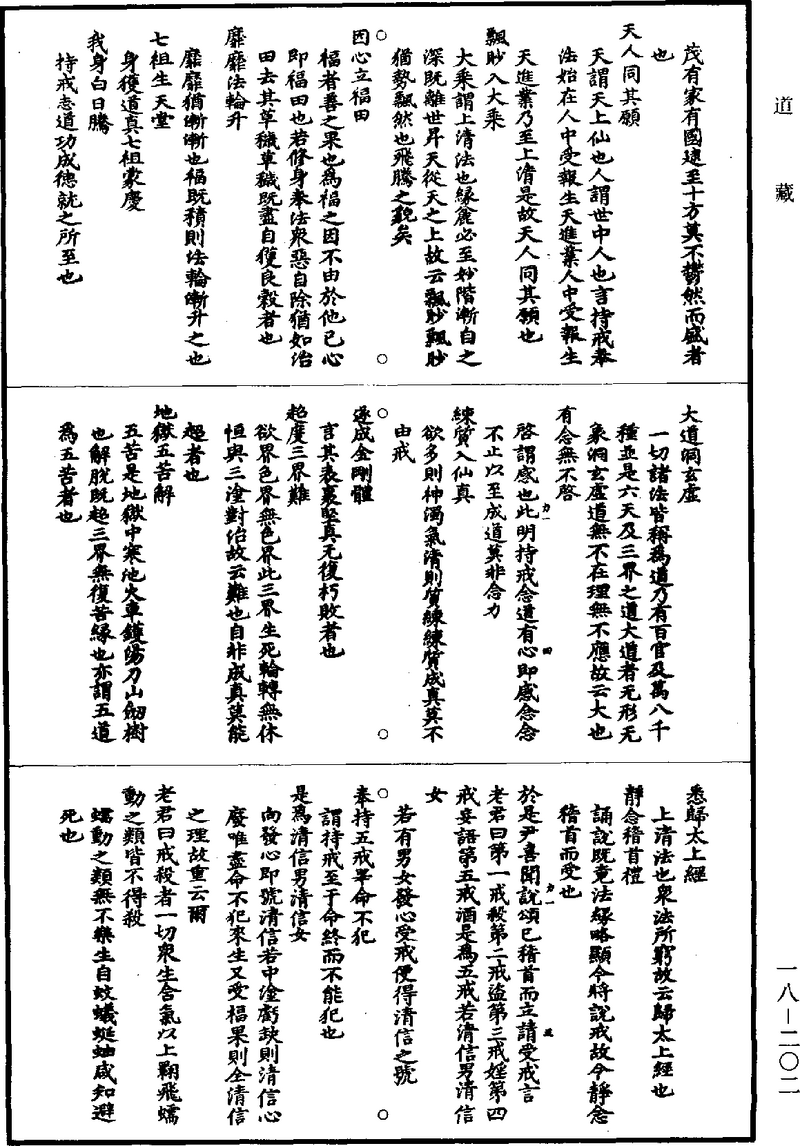 道藏
茂有家有國遠至十方莫不鬱然而盛者
也
天人同其願
天謂天上仙也人謂世中人也言持戒奉
法始在人中受報生天進業人中受報生
天進業乃至上清是故天人同其願也
飄眇入大乘
大乘謂上清法也緣麁必至妙階漸自之
深既離世昇天從天之上故云飄眇飄眇
猶勢飄然也飛騰之貌矣
因心立福田
福者善之果也為福之因不由於他已心
即福田也若修身奉法衆惡自除猶如治
田去其草穢草穢既盡自獲良穀者也
靡靡法輪升
靡靡猶漸漸也福既積則法輪漸升之也
七祖生天堂
身獲道真七祖蒙慶
我身白日騰
持戒志道功成德就之所至也
大道洞玄虛
一切諸法皆稱為道乃有百官及萬八千
種並是六天及三界之道大道者无形无
象洞玄虛道無不在理無不應故云大也
有念無不啓
啓謂感也此明持戒念道有心即感念念
不止以至成道莫非念力
練質入仙真
欲多則神濁氣清則質練練質成真莫不
由戒
遂成金剛體
言其表裏堅真无復朽敗者也
超度三界難
欲界色界無色界此三界生死輪轉無休
恒與三塗對治故云難也自非成真莫能
超者也
地獄五苦解
五苦是地獄中寒池火車鑊湯刀山劒樹
也解脫既超三界無復苦緣也亦謂五道
為五苦者也
悉歸太上經
上清法也衆法所窮故云歸太上經也
靜念稽首禮
誦說既竟法緣略顯今將說戒故令靜念
稽首而受也
於是尹喜聞說頌已稽首而立請受戒言
老君曰第一戒殺第二戒盜第三戒婬第四
戒妄語第五戒酒是為五戒若清信男清信
女
若有男女發心受戒便得清信之號
奉持五戒畢命不犯
謂持戒至于命終而不能犯也
是為清信男清信女
向發心即號清信若中塗虧缺則清信心
廢唯盡命不犯來生又受福果則全清信
之理故重云爾
老君曰戒殺者一切衆生含氣以上翾飛蠕
動之類皆不得殺
蠕動之類無不樂生自蚊蟻蜒蚰咸知避
死也
一八—二〇二